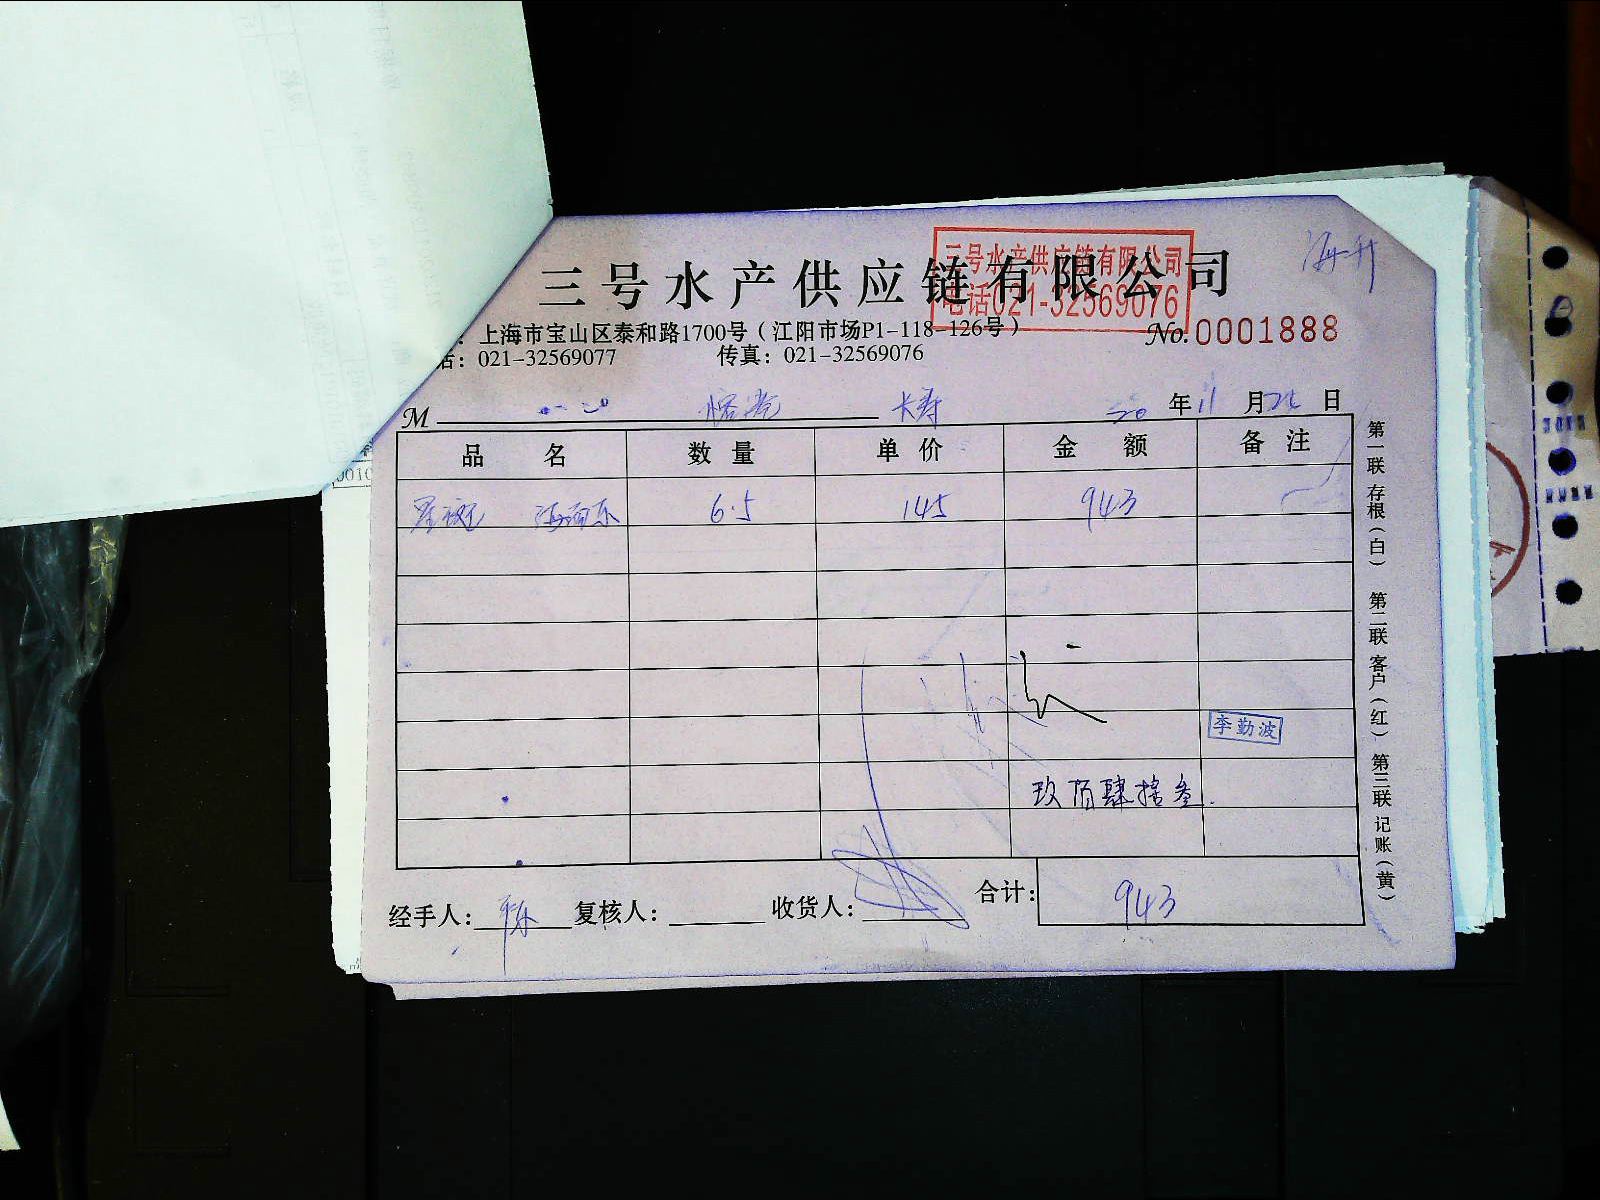 海升
三号水产供应链有限公司
三号水产供应链有限公司
电话021-32569076
上海市宝山区泰和路1700号（江阳市场P1-118-126号）
No.0001888
话：021-32569077 传真：021-32569076
M 长寿 20年11月 日
品名 数量 单价 金额 备注
星斑 6.5 145 943
李勤波
玖佰肆拾叁
经手人： 复核人： 收货人： 合计：943
第一联存根（白） 第二联客户（红） 第三联记账（黄）